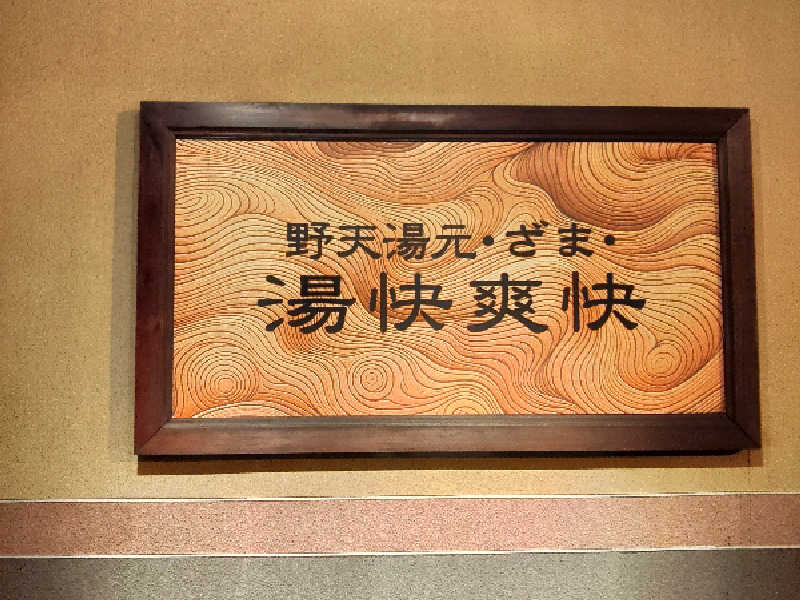 野天湯元・ざま・
湯快爽快